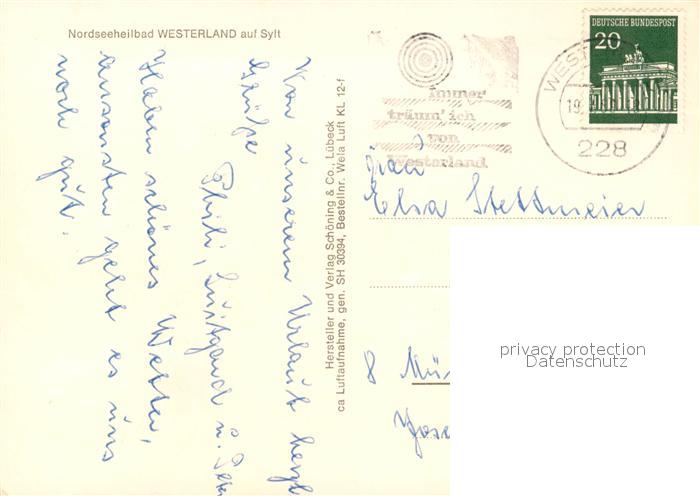 Nordseeheilbad WESTERLAND auf Sylt
DEUTSCHE BUNDESPOST
20
WEST
19.
228
immer
träum' ich
von
Westerland
Von unserem Urlaub herzl
Grüße
Luitgard u. Peter
Haben schönes Wetter,
ansonsten geht es uns
noch gut.
Hersteller und Verlag Schöning & Co., Lübeck
ca Luftaufnahme, gen. SH 30394, Bestellnr. Wela Luft KL 12-f
Frau
Elsa Stettmeier
8 Mün
Jose
privacy protection
Datenschutz